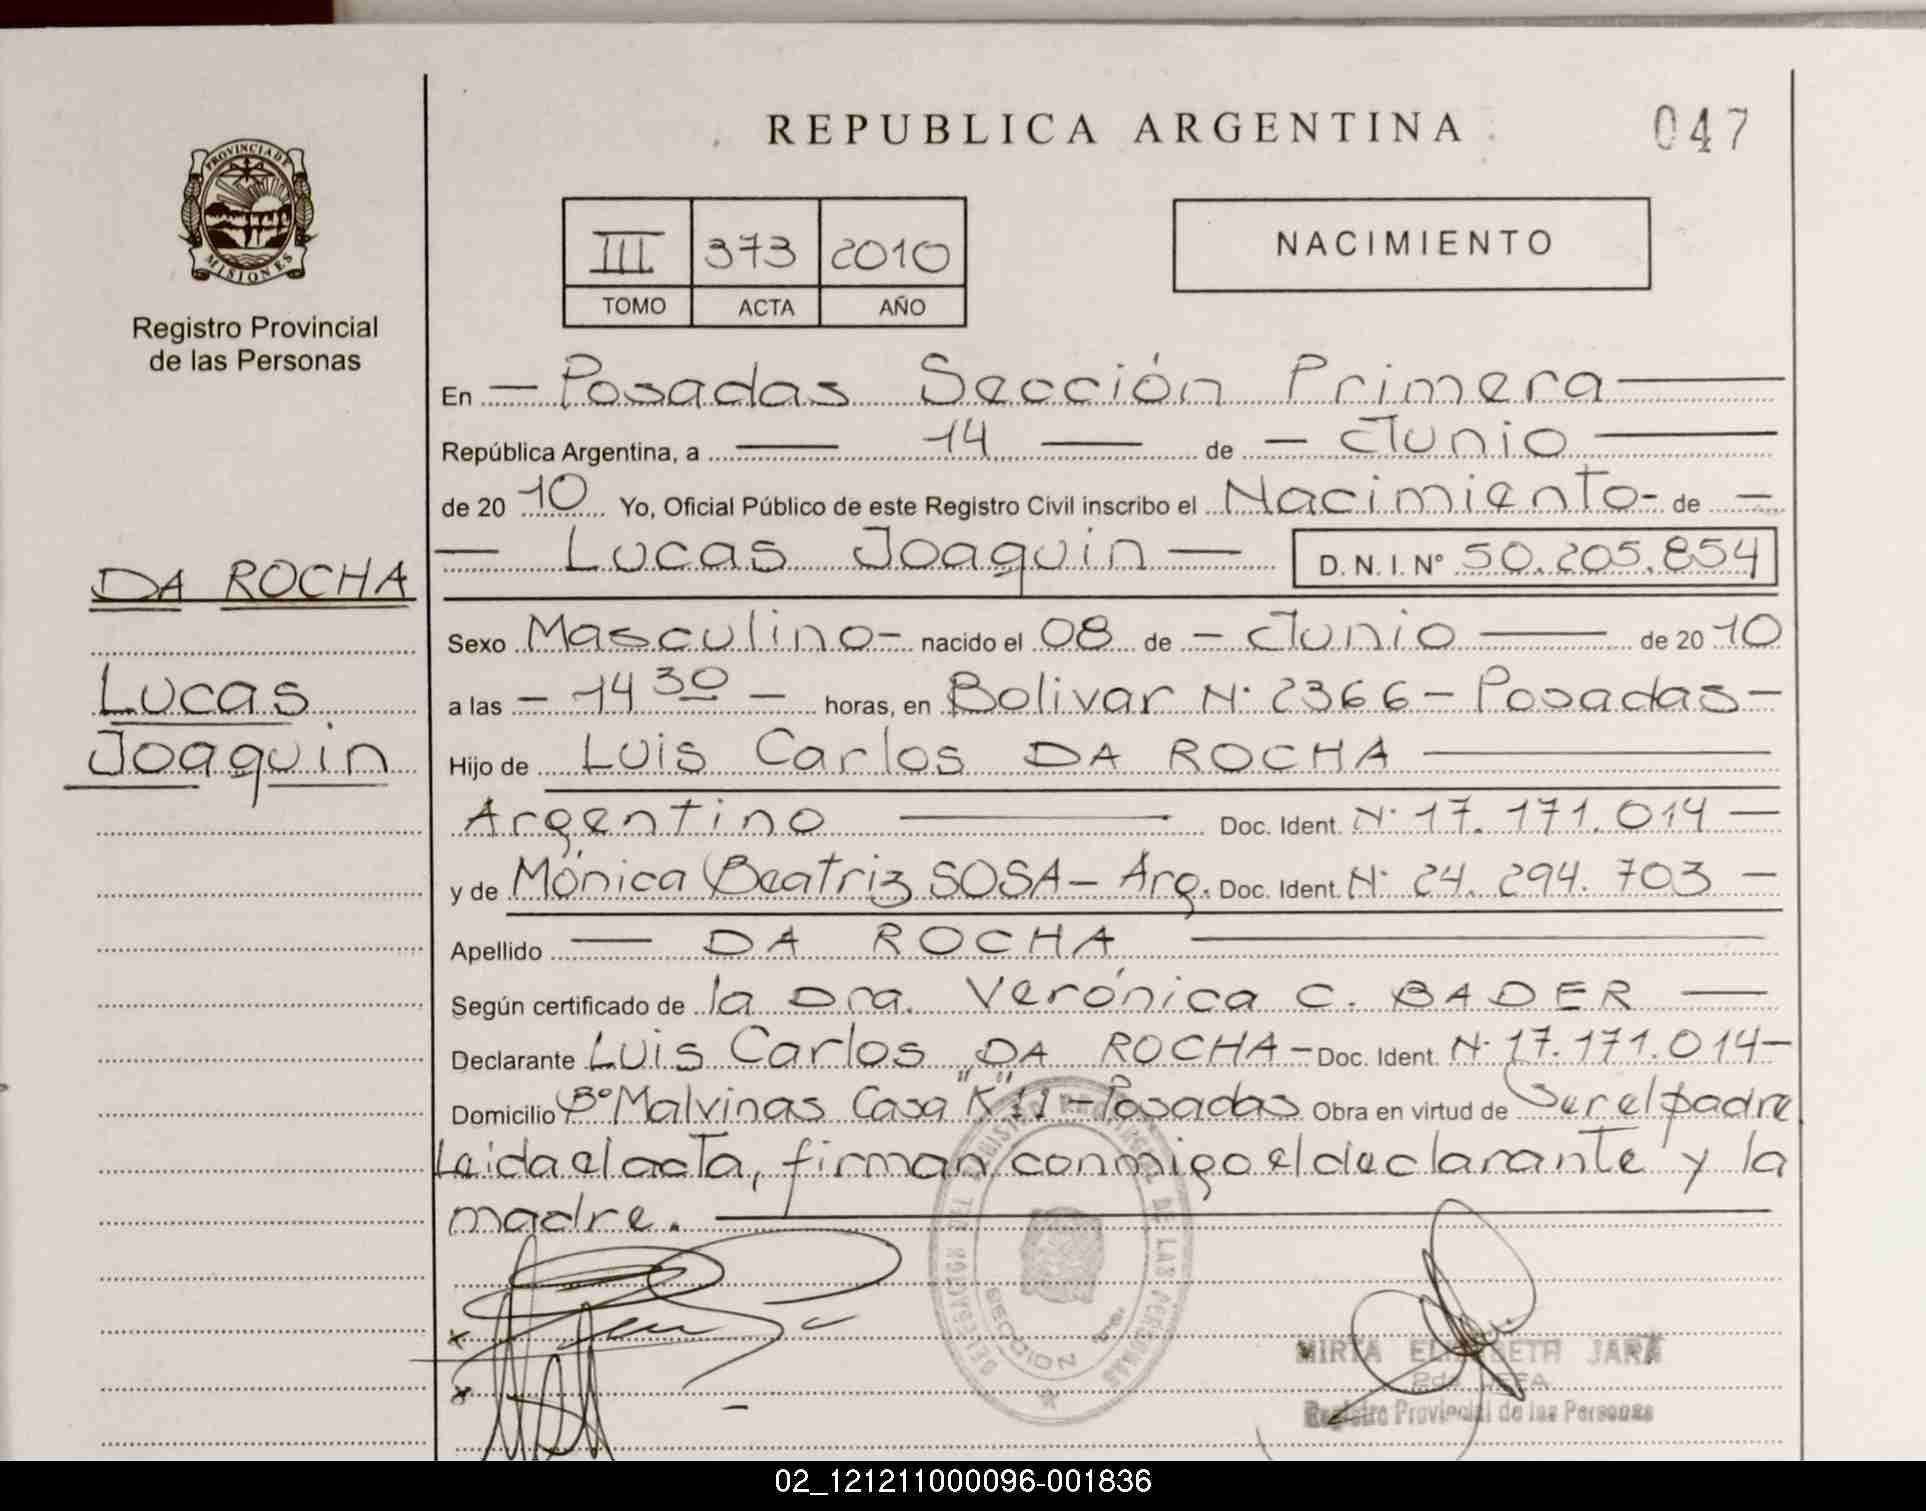 REPUBLICA ARGENTINA
047
PROVINCIA DE
MISIONES
Registro Provincial
de las Personas
III 373 2010
TOMO ACTA AÑO
NACIMIENTO
En — Posadas Sección Primera —
República Argentina, a — 14 — de — Junio —
de 20 10 Yo, Oficial Público de este Registro Civil inscribo el Nacimiento - de —
— Lucas Joaquin — D.N.I. Nº 50.205.854
DA ROCHA
Lucas
Joaquin
Sexo Masculino - nacido el 08 de — Junio — de 20 10
a las — 14 30 — horas, en Bolivar Nº 2366 - Posadas -
Hijo de Luis Carlos DA ROCHA —
Argentino — Doc. Ident. Nº 17.171.014 —
y de Mónica Beatriz SOSA - Arg. Doc. Ident. Nº 24.294.703 —
Apellido — DA ROCHA —
Según certificado de la Dra. Verónica C. BADER —
Declarante Luis Carlos DA ROCHA - Doc. Ident. Nº 17.171.014 -
Domicilio Bº Malvinas Casa "K" 11 - Posadas Obra en virtud de Ser el padre
Leida el acta, firman conmigo el declarante y la
madre. —
DELEGACION DEL REGISTRO PROVINCIAL DE LAS PERSONAS
SECCION 1ra.
MIRTA ELIZABETH JARA
2da. JEFA
Registro Provincial de las Personas
02_121211000096-001836